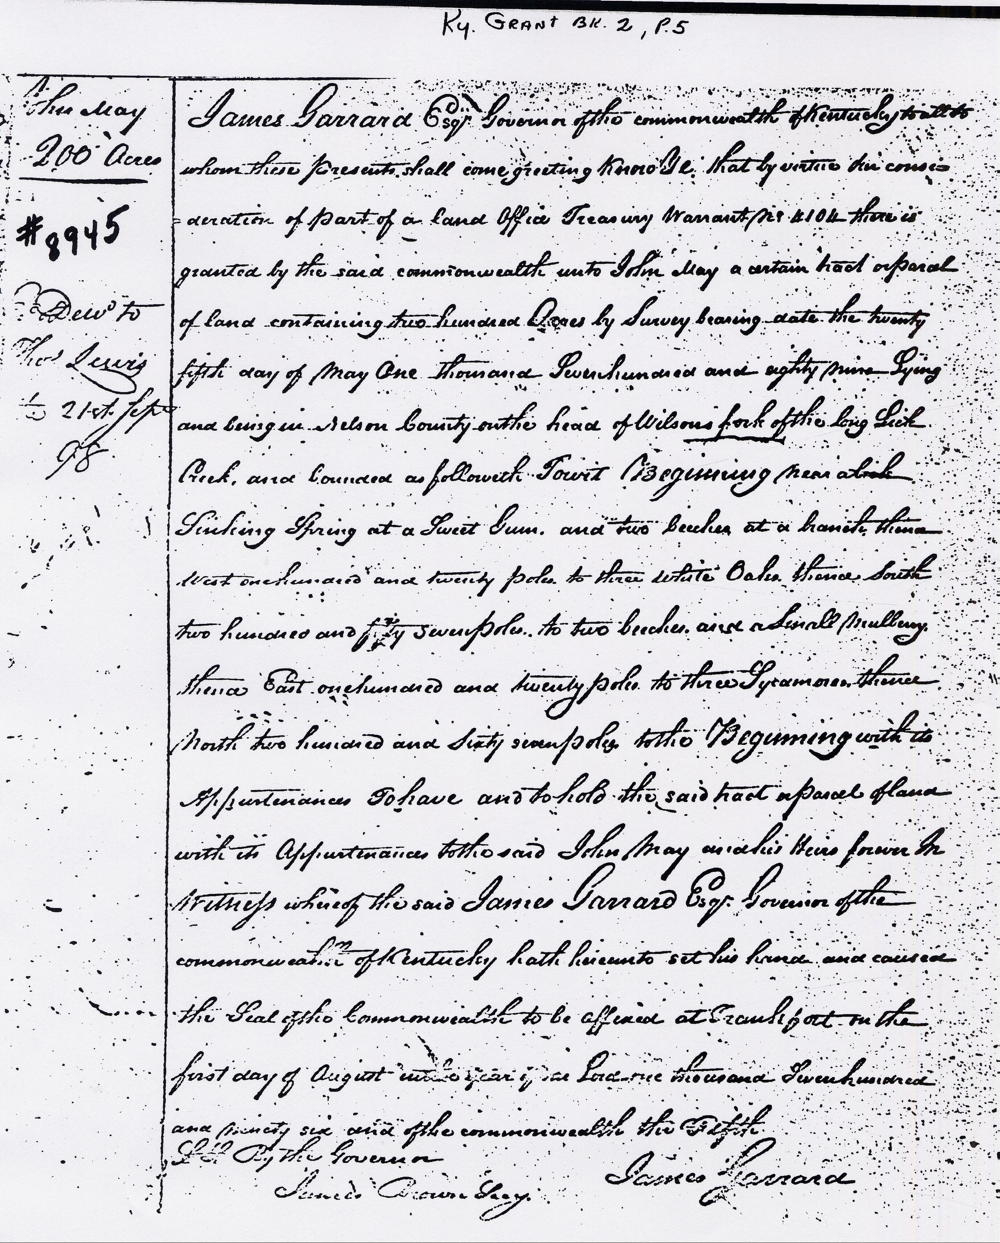 Ky. GRANT BK. 2, P.5
John May
200 Acres
#8945
Delvd to
Thos Lewis
21st Sepr
98
James Garrard Esqr Governor of the commonwealth of Kentucky to all to
whom these presents shall come greeting Know Ye that by virtue & in consi=
=deration of part of a land Office Treasury Warrant No 4104 there is
granted by the said commonwealth unto John May a certain tract or parcel
of land containing two hundred Acres by Survey bearing date the twenty
fifth day of May One thousand Seven hundred and eighty nine Lying
and being in Nelson County on the head of Wilsons fork of the long Lick
Creek, and bounded as followeth Towit Beginning near a
Sinking Spring at a Sweet Gum and two beeches at a branch, thence
West one hundred and twenty poles to three white Oaks thence South
two hundred and sixty seven poles to two beeches and a Small Mulberry
thence East one hundred and twenty poles to three Sycamores thence
North two hundred and Sixty seven poles to the Beginning with its
Appurtenances To have and to hold the said tract or parcel of land
with its Appurtenances to the said John May and his Heirs forever In
Witness whereof the said James Garrard Esqr Governor of the
commonwealth of Kentucky hath hereunto set his hand and caused
the Seal of the Commonwealth to be affixed at Frankfort on the
first day of August in the year of our Lord one thousand Seven hundred
and ninety six and of the commonwealth the Fifth
LS By the Governor
James Garrard
James Brown Secy.